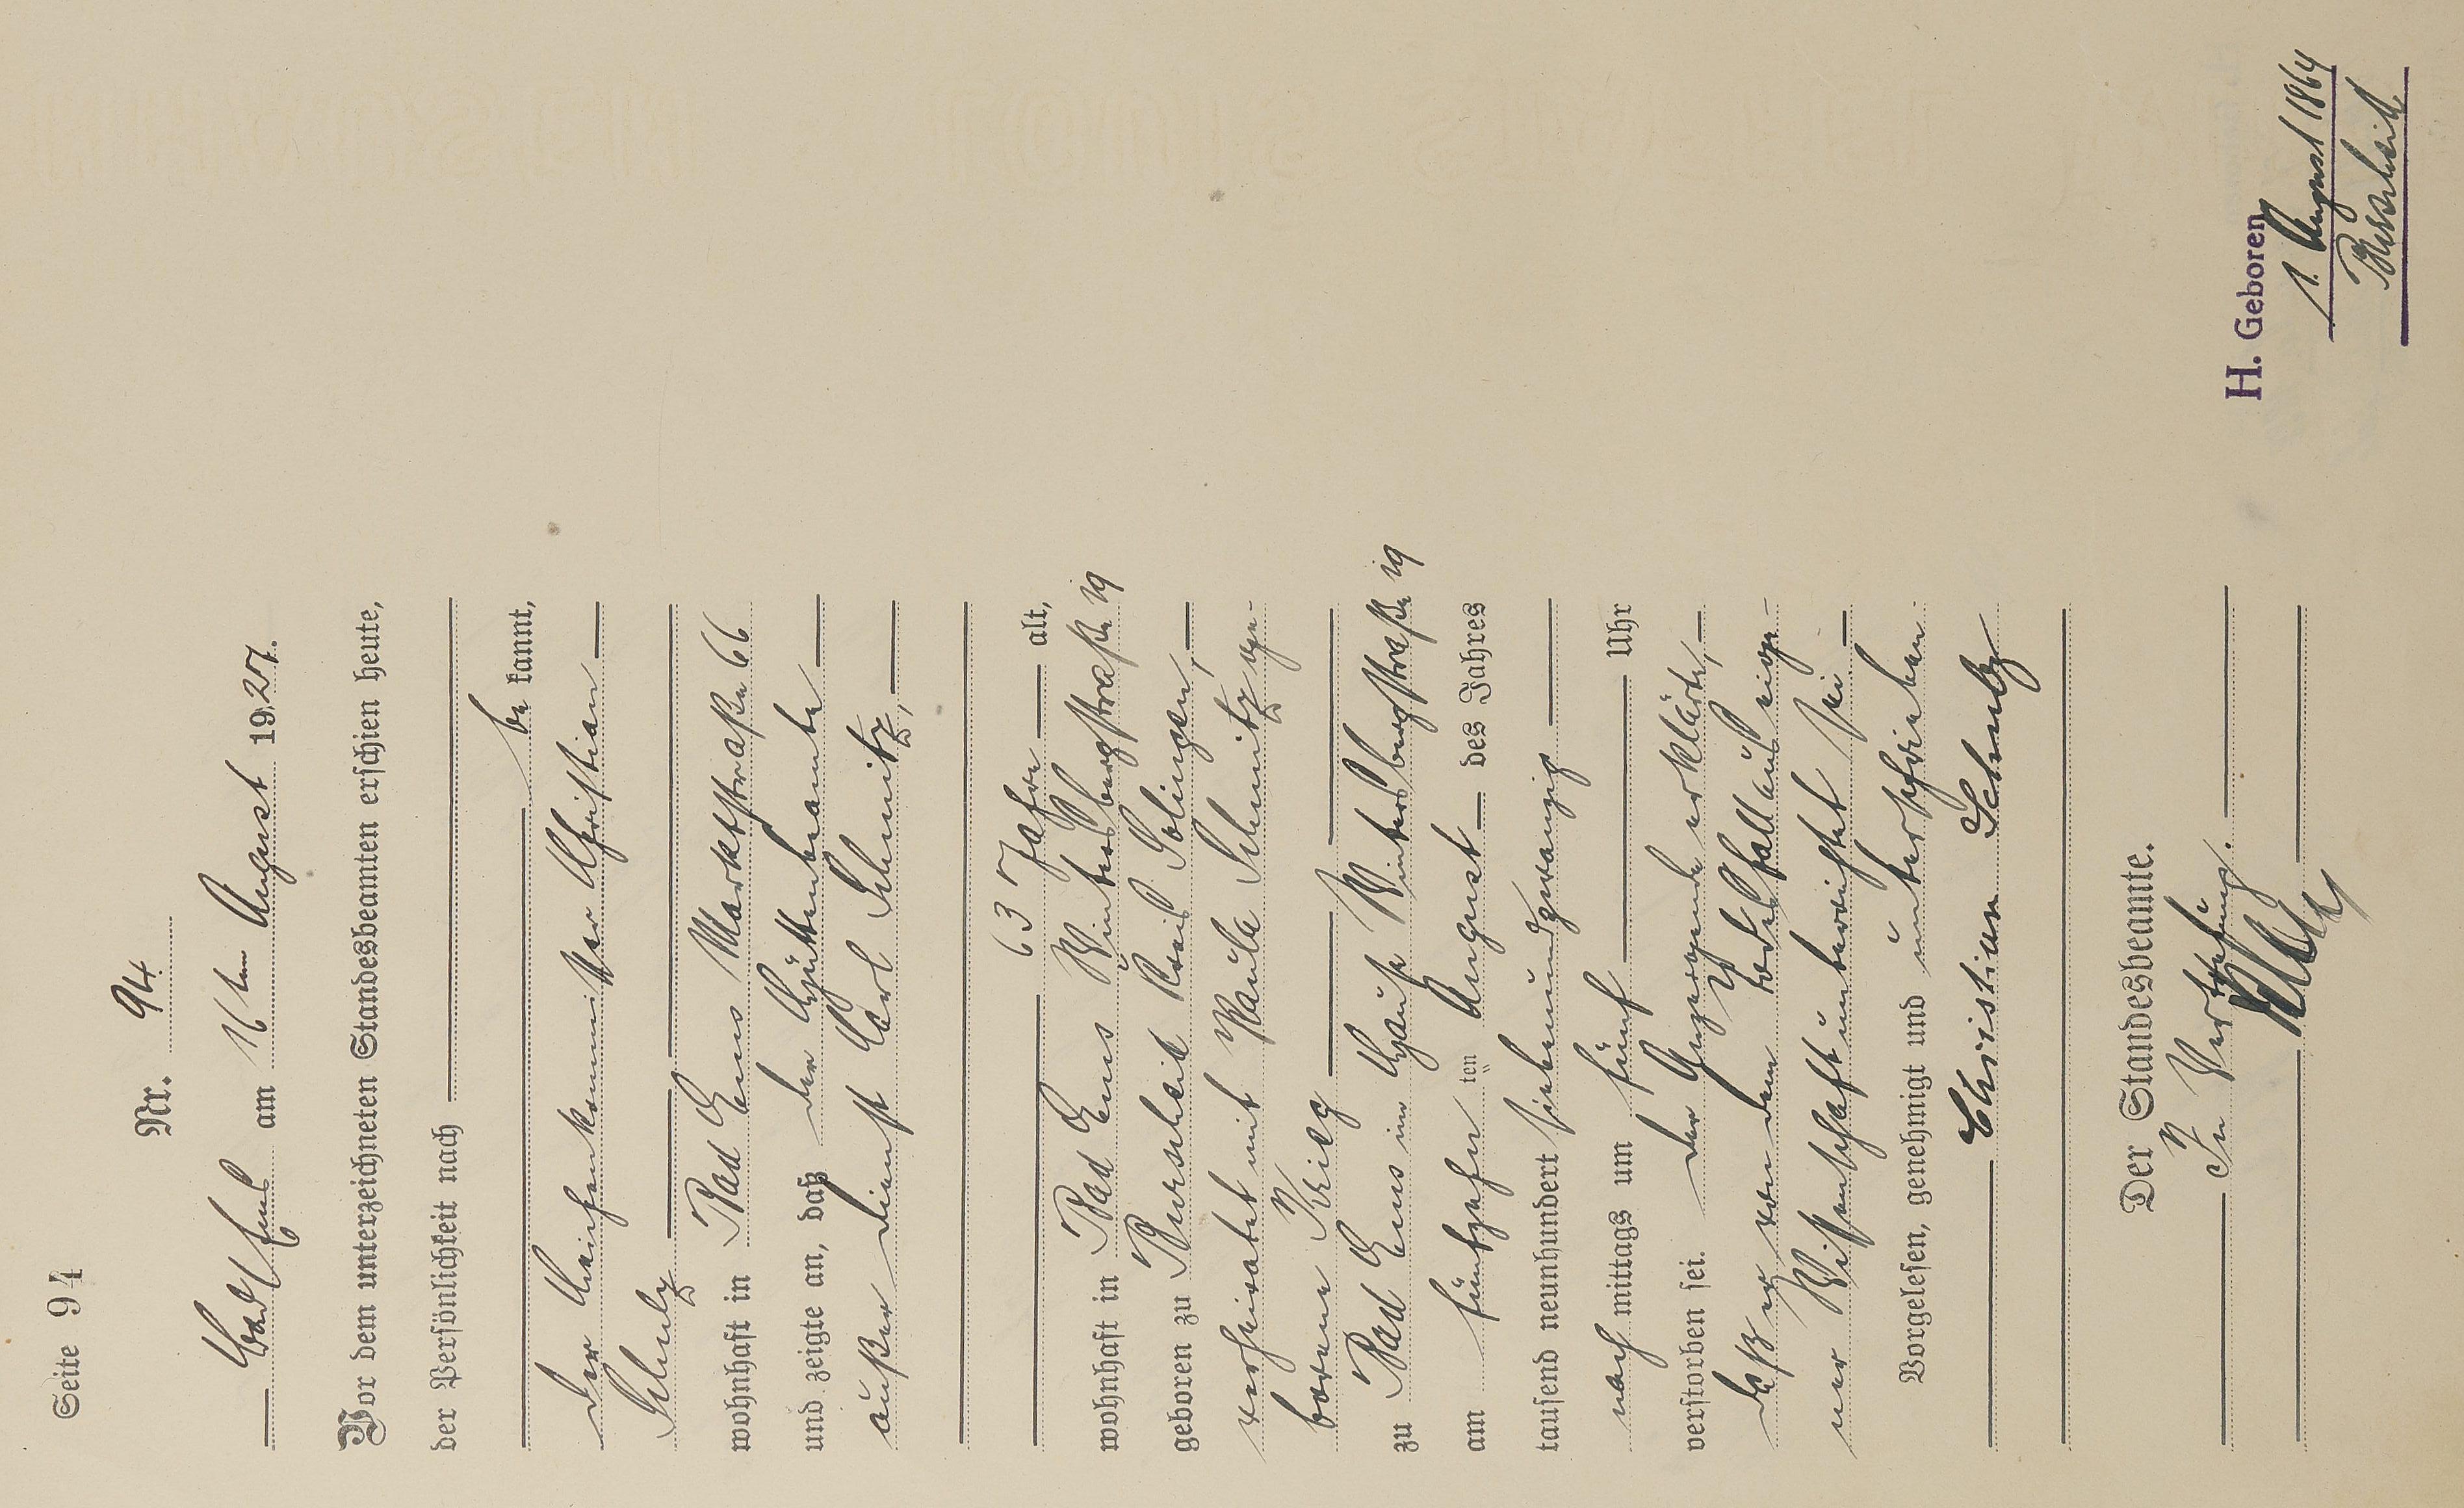 Seite 94
Nr. 94.
Bad Ems am 16ten August 1927.
Vor dem unterzeichneten Standesbeamten erschien heute,
der Persönlichkeit nach
be kannt,
der Leichenkommissar Christian
Schulz
wohnhaft in Bad Ems Marktstraße 66
und zeigte an, daß der Hüttenbeamte
außer Dienst Carl Schmitz,
63 Jahre alt,
wohnhaft in Bad Ems Wintersbergstraße 19
geboren zu Burscheid Kreis Solingen,
verheiratet mit Paula Schmitz ge-
borene
zu Bad Ems im Hause Wintersbergstraße 19
am fünfzehn ten August des Jahres
tausend neunhundert siebenundzwanzig
nach mittags um fünf Uhr
verstorben sei. Der Anzeigende erklärte,
daß er von dem Todesfall aus eige-
ner Wissenschaft unterrichtet sei
Vorgelesen, genehmigt und unterschrieben
Christian Schulz
Der Standesbeamte.
In Vertretung.
H. Geboren
1. August 1864
Burscheid